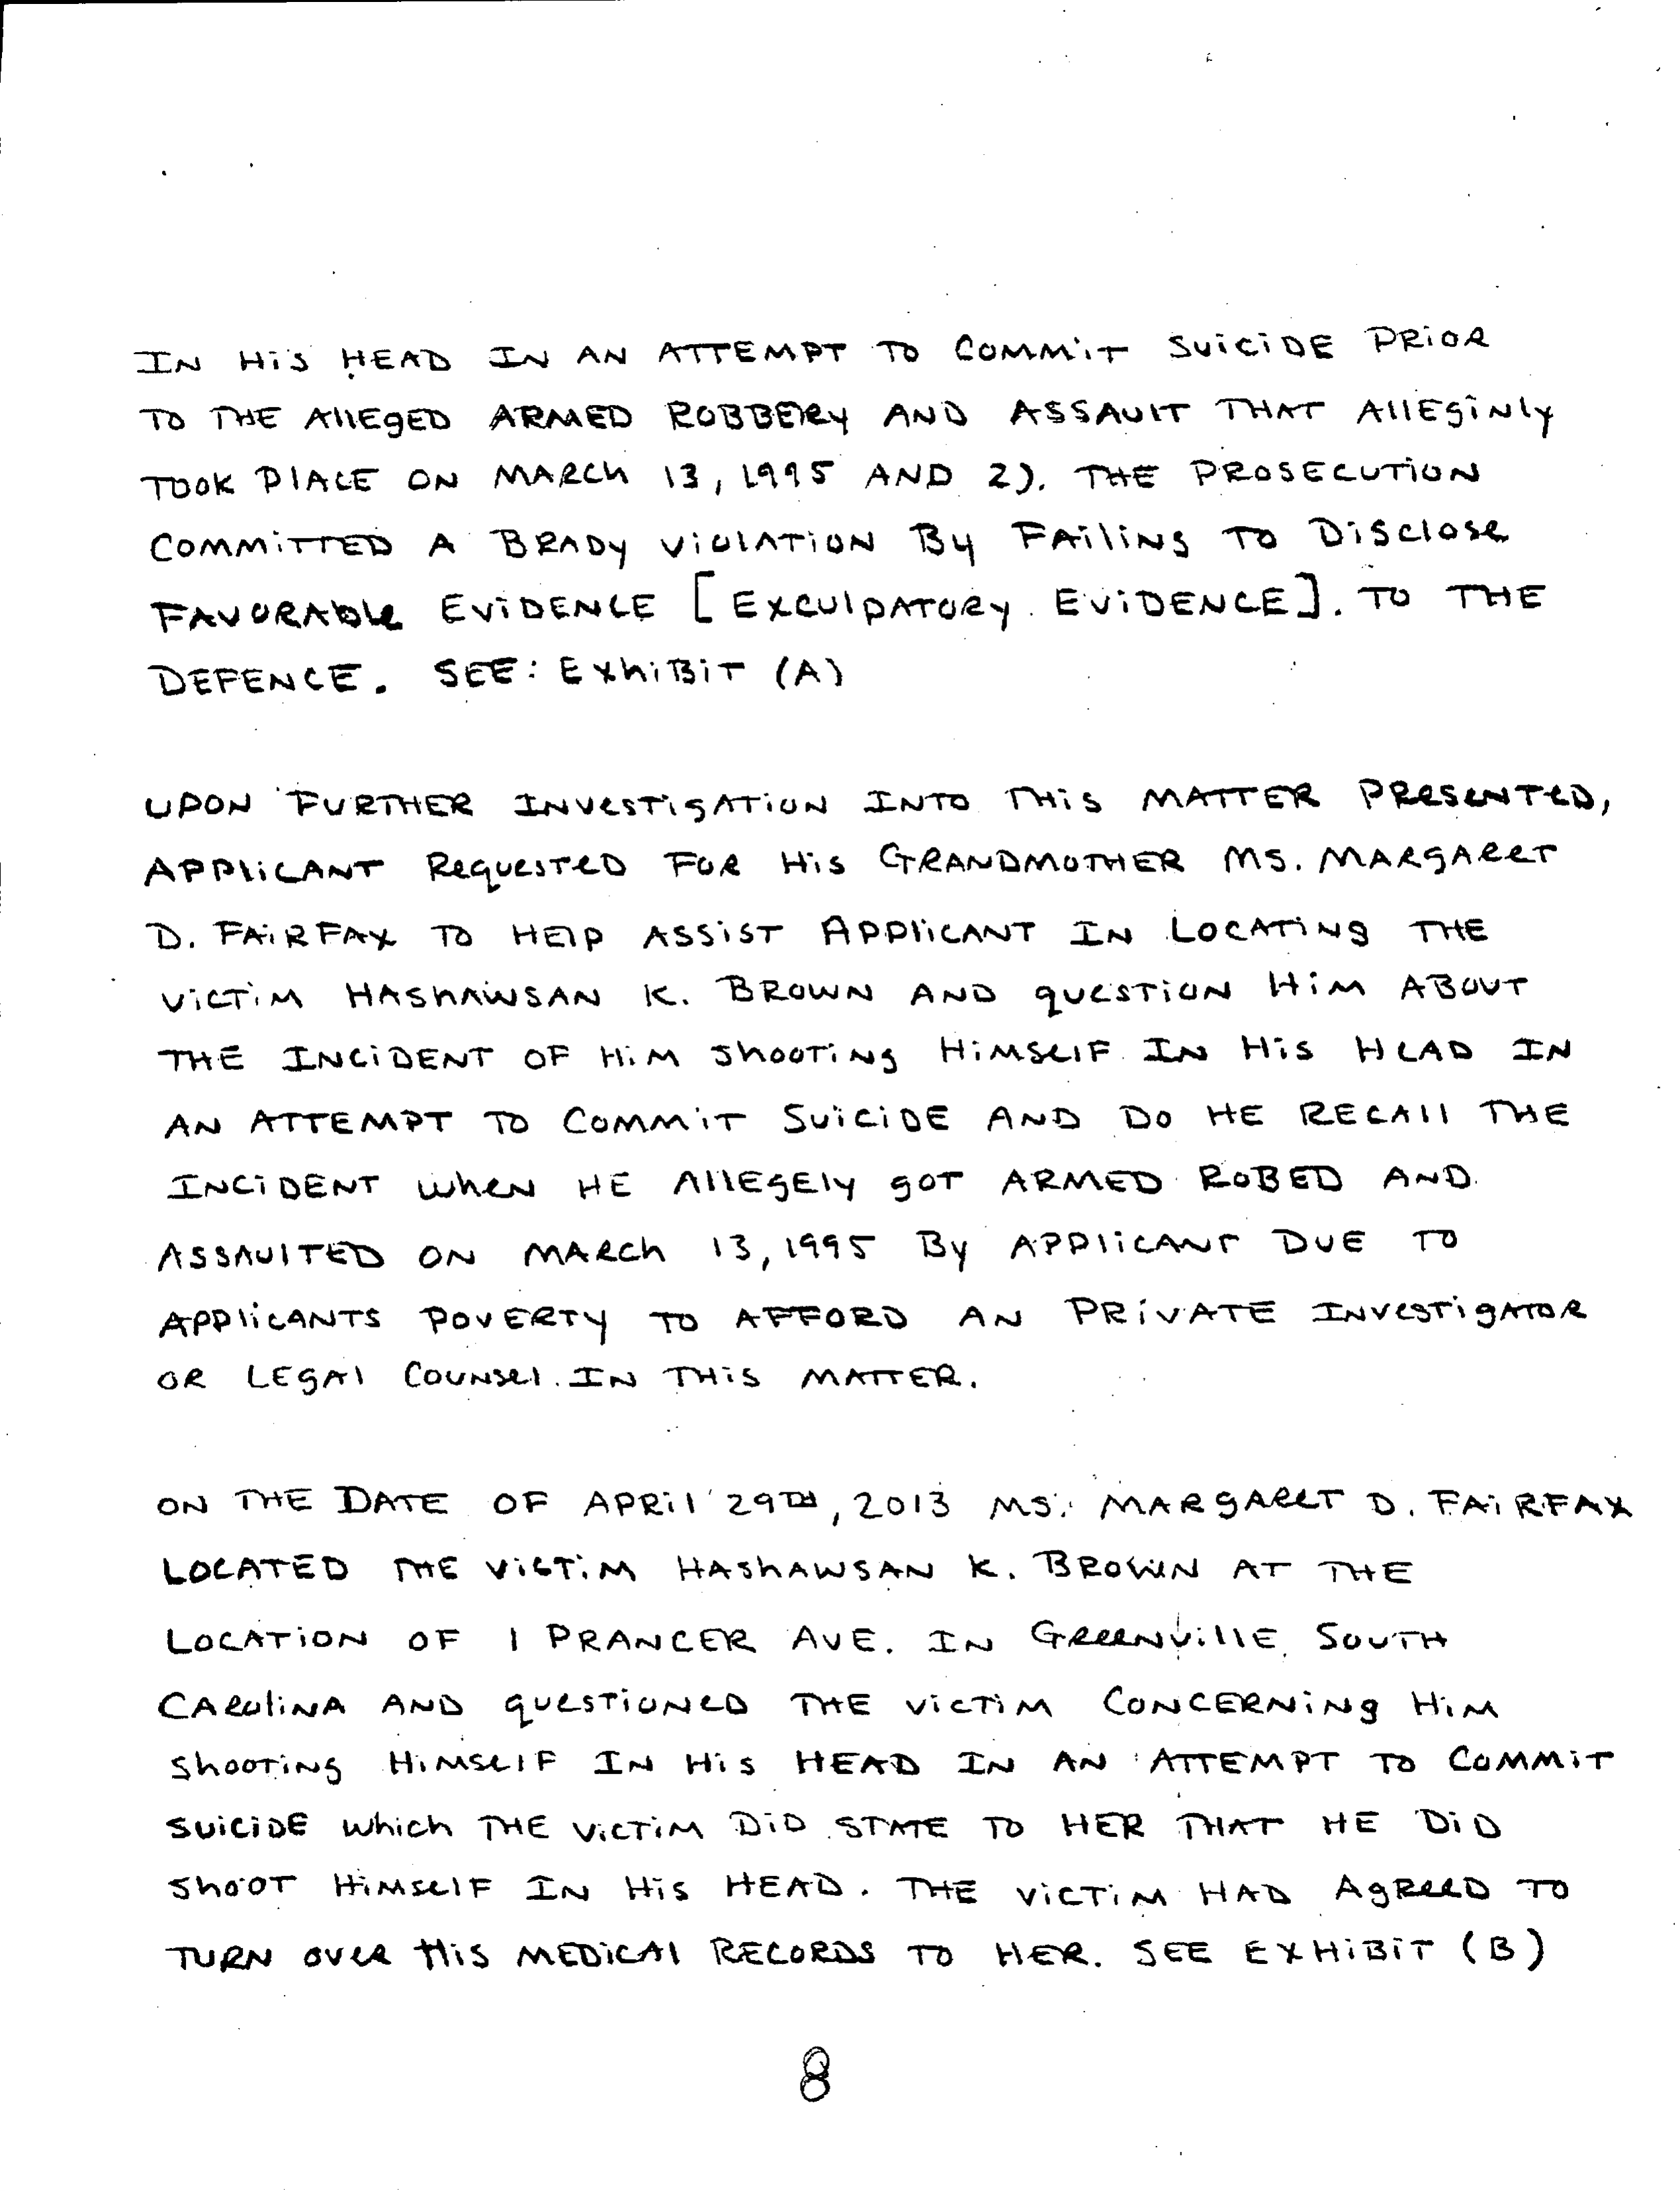 IN HiS HEAD IN AN ATTEMPT TO COMMiT SUiCiDE PRiOR
TO THE AllEGED ARMED ROBBERY AND ASSAUlT THAT AllEGiNly
TOOK PlACE ON MARCH 13, 1995 AND 2). THE PROSECUTiON
COMMiTTED A BRADY ViOlATiON By FAiliNG TO DiSclose
FAVORABle EViDENCE [EXCUlPATORY EViDENCE]. TO THE
DEFENCE. SEE: ExhiBiT (A)
UPON FURTHER INVESTiGATiON INTO THiS MATTER PReSeNTeD,
APPliCANT RequesTeD FOR HiS GRANDMOTHER MS. MARGAReT
D. FAiRFAX TO HElP ASSiST APPliCANT IN LOCATiNG THE
ViCTiM HASHAWSAN K. BROWN AND QUeSTiON HiM ABOUT
THE INCiDENT OF HiM ShOOTiNG HiMSelF IN HiS HeAD IN
AN ATTEMPT TO COMMiT SUiCiDE AND DO HE RECAll THE
INCiDENT wheN HE AllEGEly GOT ARMED ROBED AND
ASSAUlTED ON MARCh 13, 1995 By APPliCANT DUE TO
APPliCANTS POVERTY TO AFFORD AN PRiVATE INVeSTiGATOR
OR LEGAl COUNSel IN THiS MATTER.
ON THE DATE OF APRil 29TH, 2013 MS. MARGAReT D. FAiRFAX
LOCATED THE ViCTiM HASHAWSAN K. BROWN AT THE
LOCATiON OF 1 PRANCER AVE. IN GReeNVillE SOUTH
CAROliNA AND QUeSTiONeD THE ViCTiM CONCERNiNG HiM
ShOOTiNG HiMSelF IN HiS HEAD IN AN ATTEMPT TO COMMiT
SUiCiDE which THE ViCTiM DiD STATE TO HER THAT HE DiD
ShOOT HiMSelF IN HiS HEAD. THE ViCTiM HAD AGReeD TO
TURN OVeR HiS MEDiCAl RECORDS TO HER. SEE EXHiBiT (B)
8